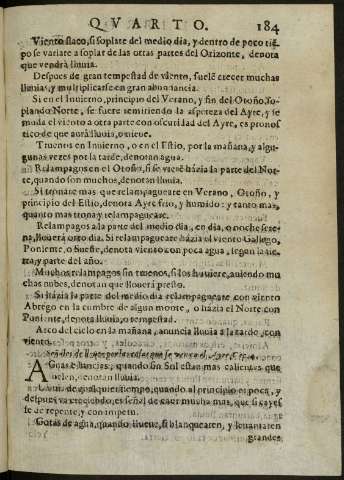 QVARTO. 184
Viento flaco, si soplare del medio dia, y dentro de poco tiẽ-
po se variare a soplar de las otras partes del Orizonte, denota
que vendrà lluuia.
Despues de gran tempestad de viento, suele crecer muchas
lluuias, y multiplicarse en gran abundancia.
Si en el Inuierno, principio del Verano, y fin del Otoño, so-
plando Norte, se fuere sentiendo la aspereza del Ayre, y se
muda el viento a otra parte con oscuridad del Ayre, es pronos
tico de que aurà lluuia, o nieue.
Truenos en Inuierno, o en el Estio, por la mañana, y algu-
gunas vezes por la tarde, denotan agua.
Relampagos en el Otoño, si se vienẽ hàzia la parte del Nor-
te, quando son muchos, denotan lluuia.
Si tronare mas que relampagueare en Verano, Otoño, y
principio del Estio, denota Ayre frio, y humido: y tanto mas,
quanto mas trona y relampagueare.
Relampagos a la parte del medio dia, en dia, o noche sere-
na, llouerà otro dia. Si relampagueare hàzia el viento Gallego,
Poniente, o Sueste, denota viento con poca agua, segun la tie-
rra, y parte del año.
Muchos relampagos sin truenos, si los huuiere, auiendo mu
chas nubes, denotan que llouerà presto.
Si hàzia la parte del medio dia relampagueare con viento
Abrego en la cumbre de algun monte, o hàzia el Norte con
Poniente, denota lluuia, o tempestad.
Arco del cielo en la mañana, anuncia lluuia a la tarde, con
viento.
Señales de llouer por las cosas que se ven en el Ayre,
Aguas en quando sin Sol estan mas calientes que
suelen, denotan lluuia.
Agua, de qualquier tiempo, quando al principio es poca, y
despues va creciendo, es señal de caer mucha mas, que si cayes
se de repente, y con impetu.
Gotas de agua, quando llueue, si blanquearen, y leuantaren
grandes